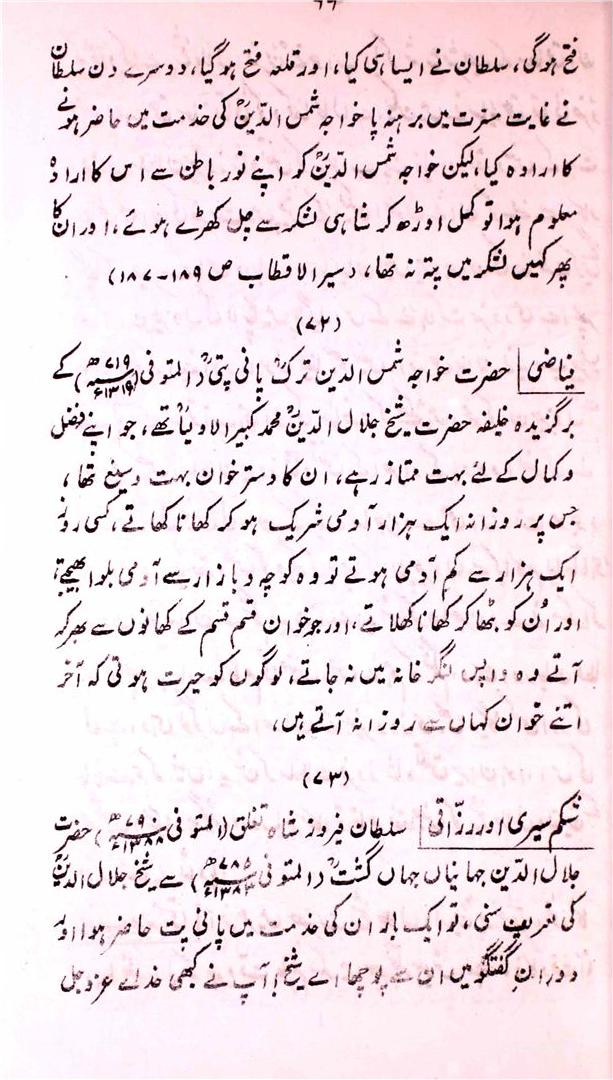 ۶۶
فتح ہوگی، سلطان نے ایسا ہی کیا، اور قلعہ فتح ہوگیا، دوسرے دن سلطان
نے غایت مسرت میں برہنہ پا خواجہ شمس الدینؒ کی خدمت میں حاضر ہونے
کا ارادہ کیا، لیکن خواجہ شمس الدینؒ کو اپنے نور باطن سے اس کا ارادہ
معلوم ہوا تو کمل اوڑھ کر شاہی لشکر سے چل کھڑے ہوئے، اور ان کا
پھر کہیں لشکر میں پتہ نہ تھا، (سیر الاقطاب ص ۱۸۹-۱۸۷)
(۷۲)
فیاضی حضرت خواجہ شمس الدین ترک پانی پتیؒ (المتوفی ۷۱۹ھ ۱۳۱۹ء) کے
برگزیدہ خلیفہ حضرت شیخ جلال الدینؒ محمد کبیر الاولیاؒ تھے، جو اپنے فضل
و کمال کے لئے بہت ممتاز رہے، ان کا دستر خوان بہت وسیع تھا،
جس پر روزانہ ایک ہزار آدمی شریک ہو کر کھانا کھاتے، کسی روز
ایک ہزار سے کم آدمی ہوتے تو وہ کوچہ و بازار سے آدمی بلوا بھیجتے
اور اُن کو بٹھا کر کھانا کھلاتے، اور جو خوان قسم قسم کے کھانوں سے بھر کر
آتے وہ واپس لنگر خانہ میں نہ جاتے، لوگوں کو حیرت ہوتی کہ آخر
اتنے خوان کہاں سے روزانہ آتے ہیں،
(۷۳)
شکم سیری اور رزّاقی سلطان فیروز شاہ تغلق (المتوفی ۷۹۰ھ ۱۳۸۸ء) حضرت
جلال الدین جہانیاں جہاں گشتؒ (المتوفی ۷۸۵ھ ۱۳۸۳ء) سے شیخ جلال الدینؒ
کی تعریف سنی، تو ایک بار ان کی خدمت میں پانی پت حاضر ہوا اور
دورانِ گفتگو میں ان سے پوچھا اے شیخ! آپ نے کبھی خدائے عزوجل